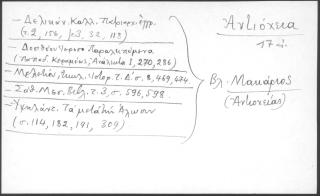 — Δελικάν. Καλλ. Πατριαρχ. ἔγγρ.
(τ. 2, 156, τ. 3, 32, 118)
— Δοσιθέου Ἱεροσ. Παραλειπόμενα
(Παπαδ. Κεραμέως, Ἀνάλεκτα 1, 270, 286)
— Μελετίου, Ἐκκλ. Ἱστορ. τ. Δ' σ. 8, 469, 474.
— Σάθ. Μεσ. Βιβλ. τ. 3, σ. 596, 598.
— Ὑψηλάντ. Τὰ μετὰ τὴν Ἅλωσιν
(σ. 114, 182, 191, 309)
Ἀντιόχεια
17 αἰ.
Βλ. Μακάριος
(Ἀντιοχείας)